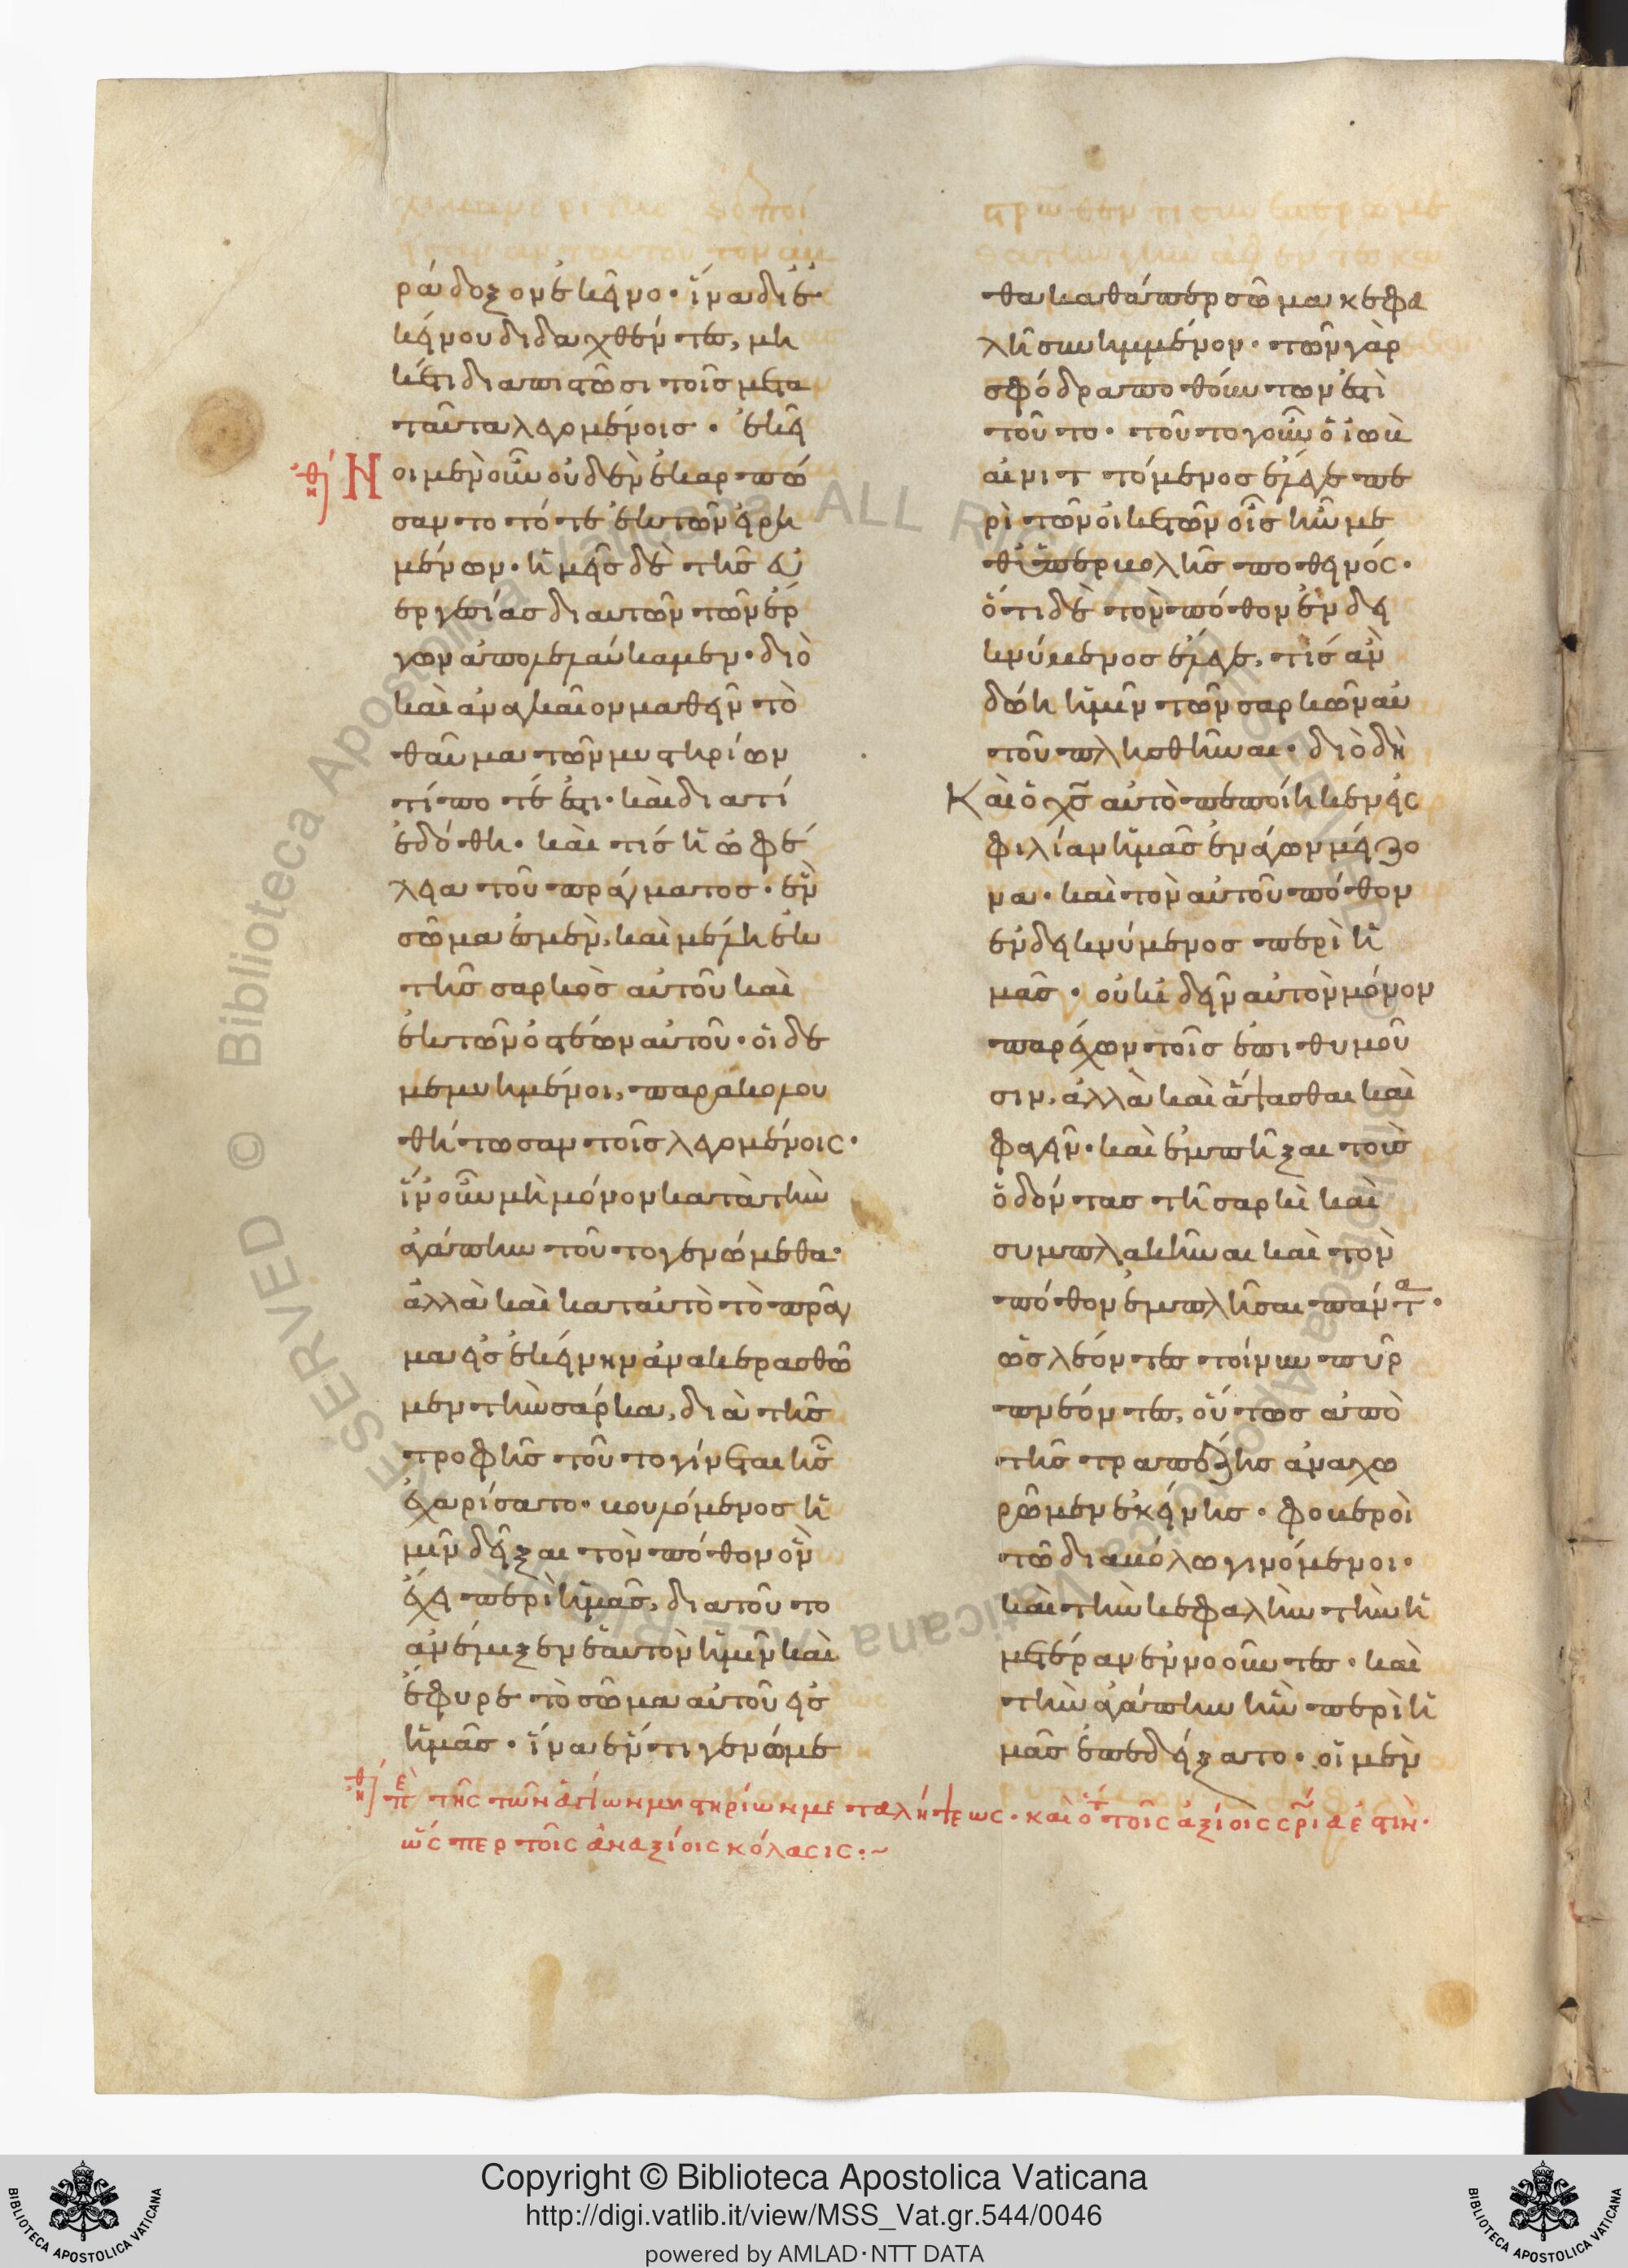 ράδοξον ἐκεῖνο· ἵνα δι ἐ
κείνου διδαχθέντες, μη
κέτι διαπιστῶσι τοῖς μετα
ταῦτα λεγομένοις· ἐκεῖ
Νοι μὲν οὖν οὐδὲν ἐκαρπώ
σαντο τότε ἐκ τῶν εἰρη
μένων· ἡμεῖς δὲ τῆς εὐ
εργεσίας δι αυτῶν τῶν ἔρ
γων ἀπολελαύκαμεν· διὸ
καὶ ἀναγκαῖον μαθεῖν τὸ
θαῦμα τῶν μυστηρίων
τί ποτέ ἐστι· καὶ διατί
ἐδόθη· καὶ τίς ἡ ὠφέ
λεια τοῦ πράγματος· ἓν
σῶμα ἐσμὲν, καὶ μέλη ἐκ
τῆς σαρκὸς αὐτοῦ καὶ
ἐκ τῶν ὀστέων αὐτοῦ· οἱ δὲ
μεμυημένοι, παρακολου
θήτωσαν τοῖς λεγομένοις·
ἵν οὖν μὴ μόνον κατὰ τὴν
ἀγάπην τοῦτο γενώμεθα·
ἀλλὰ καὶ κατ αὐτὸ τὸ πρᾶγ
μα εἰς ἐκείνην ἀνακερασθῶ
μεν τὴν σάρκα, διὰ τῆς
τροφῆς τοῦτο γίνεται ἧς
ἐχαρίσατο· βουλόμενος ἡ
μῖν δεῖξαι τὸν πόθον ὃν
ἔχει περὶ ἡμᾶς, διατοῦτο
ἀνέμιξεν ἑαυτὸν ἡμῖν καὶ
ἔφυρε τὸ σῶμα αὐτοῦ εἰς
ἡμᾶς· ἵνα ἕν τι γενώμε
θα καθάπερ σῶμα κεφα
λῆ συνημμένον· τῶν γὰρ
σφόδρα ποθούντων ἐστὶ
τοῦτο· τοῦτο γοῦν ὁ ἰὼβ
αἰνιττόμενος ἔλεγε πε
ρὶ τῶν οἰκετῶν οἷς ἦν με
θ ὑπερβολῆς ποθεινός·
ὅτι δὲ τὸν πόθον ἐνδει
κνύμενος ἔλεγε, τίς ἂν
δώη ἡμῖν τῶν σαρκῶν αὐ
τοῦ πλησθῆναι· διὸ δὴ
Καὶ ὁ χς αὐτὸ πεποίηκεν εἰς
φιλίαν ἡμᾶς ἐνάγων μείζο
να· καὶ τὸν αὐτοῦ πόθον
ἐνδεικνύμενος περὶ ἡ
μᾶς· οὐκ ἰδεῖν αὐτὸν μόνον
παρέχων τοῖς ἐπιθυμοῦ
σιν, ἀλλὰ καὶ ἅψασθαι καὶ
φαγεῖν· καὶ ἐμπῆξαι τοὺς
ὀδόντας τῆ σαρκὶ καὶ
συμπλακῆναι καὶ τὸν
πόθον ἐμπλῆσαι πάντα·
ὡς λέοντες τοίνυν πῦρ
πνέοντες, οὕτως ἀπὸ
τῆς τραπέζης ἀναχω
ρῶμεν ἐκείνης· φοβεροὶ
τῶ διαβόλω γινόμενοι·
καὶ τὴν κεφαλὴν τὴν ἡ
μετέραν ἐννοοῦντες· καὶ
τὴν ἀγάπην ἣν περὶ ἡ
μᾶς ἐπεδείξατο· οἱ μὲν
πε τῆς τῶν ἁγίων μυστηρίων μεταλήψεως· καὶ ὅτ τοῖς ἀξίοις σρία ἐστὶν·
ὥσπερ τοῖς ἀναξίοις κόλασις·~
Copyright © Biblioteca Apostolica Vaticana
http://digi.vatlib.it/view/MSS_Vat.gr.544/0046
powered by AMLAD·NTT DATA
BIBLIOTECA APOSTOLICA VATICANA
BIBLIOTECA APOSTOLICA VATICANA